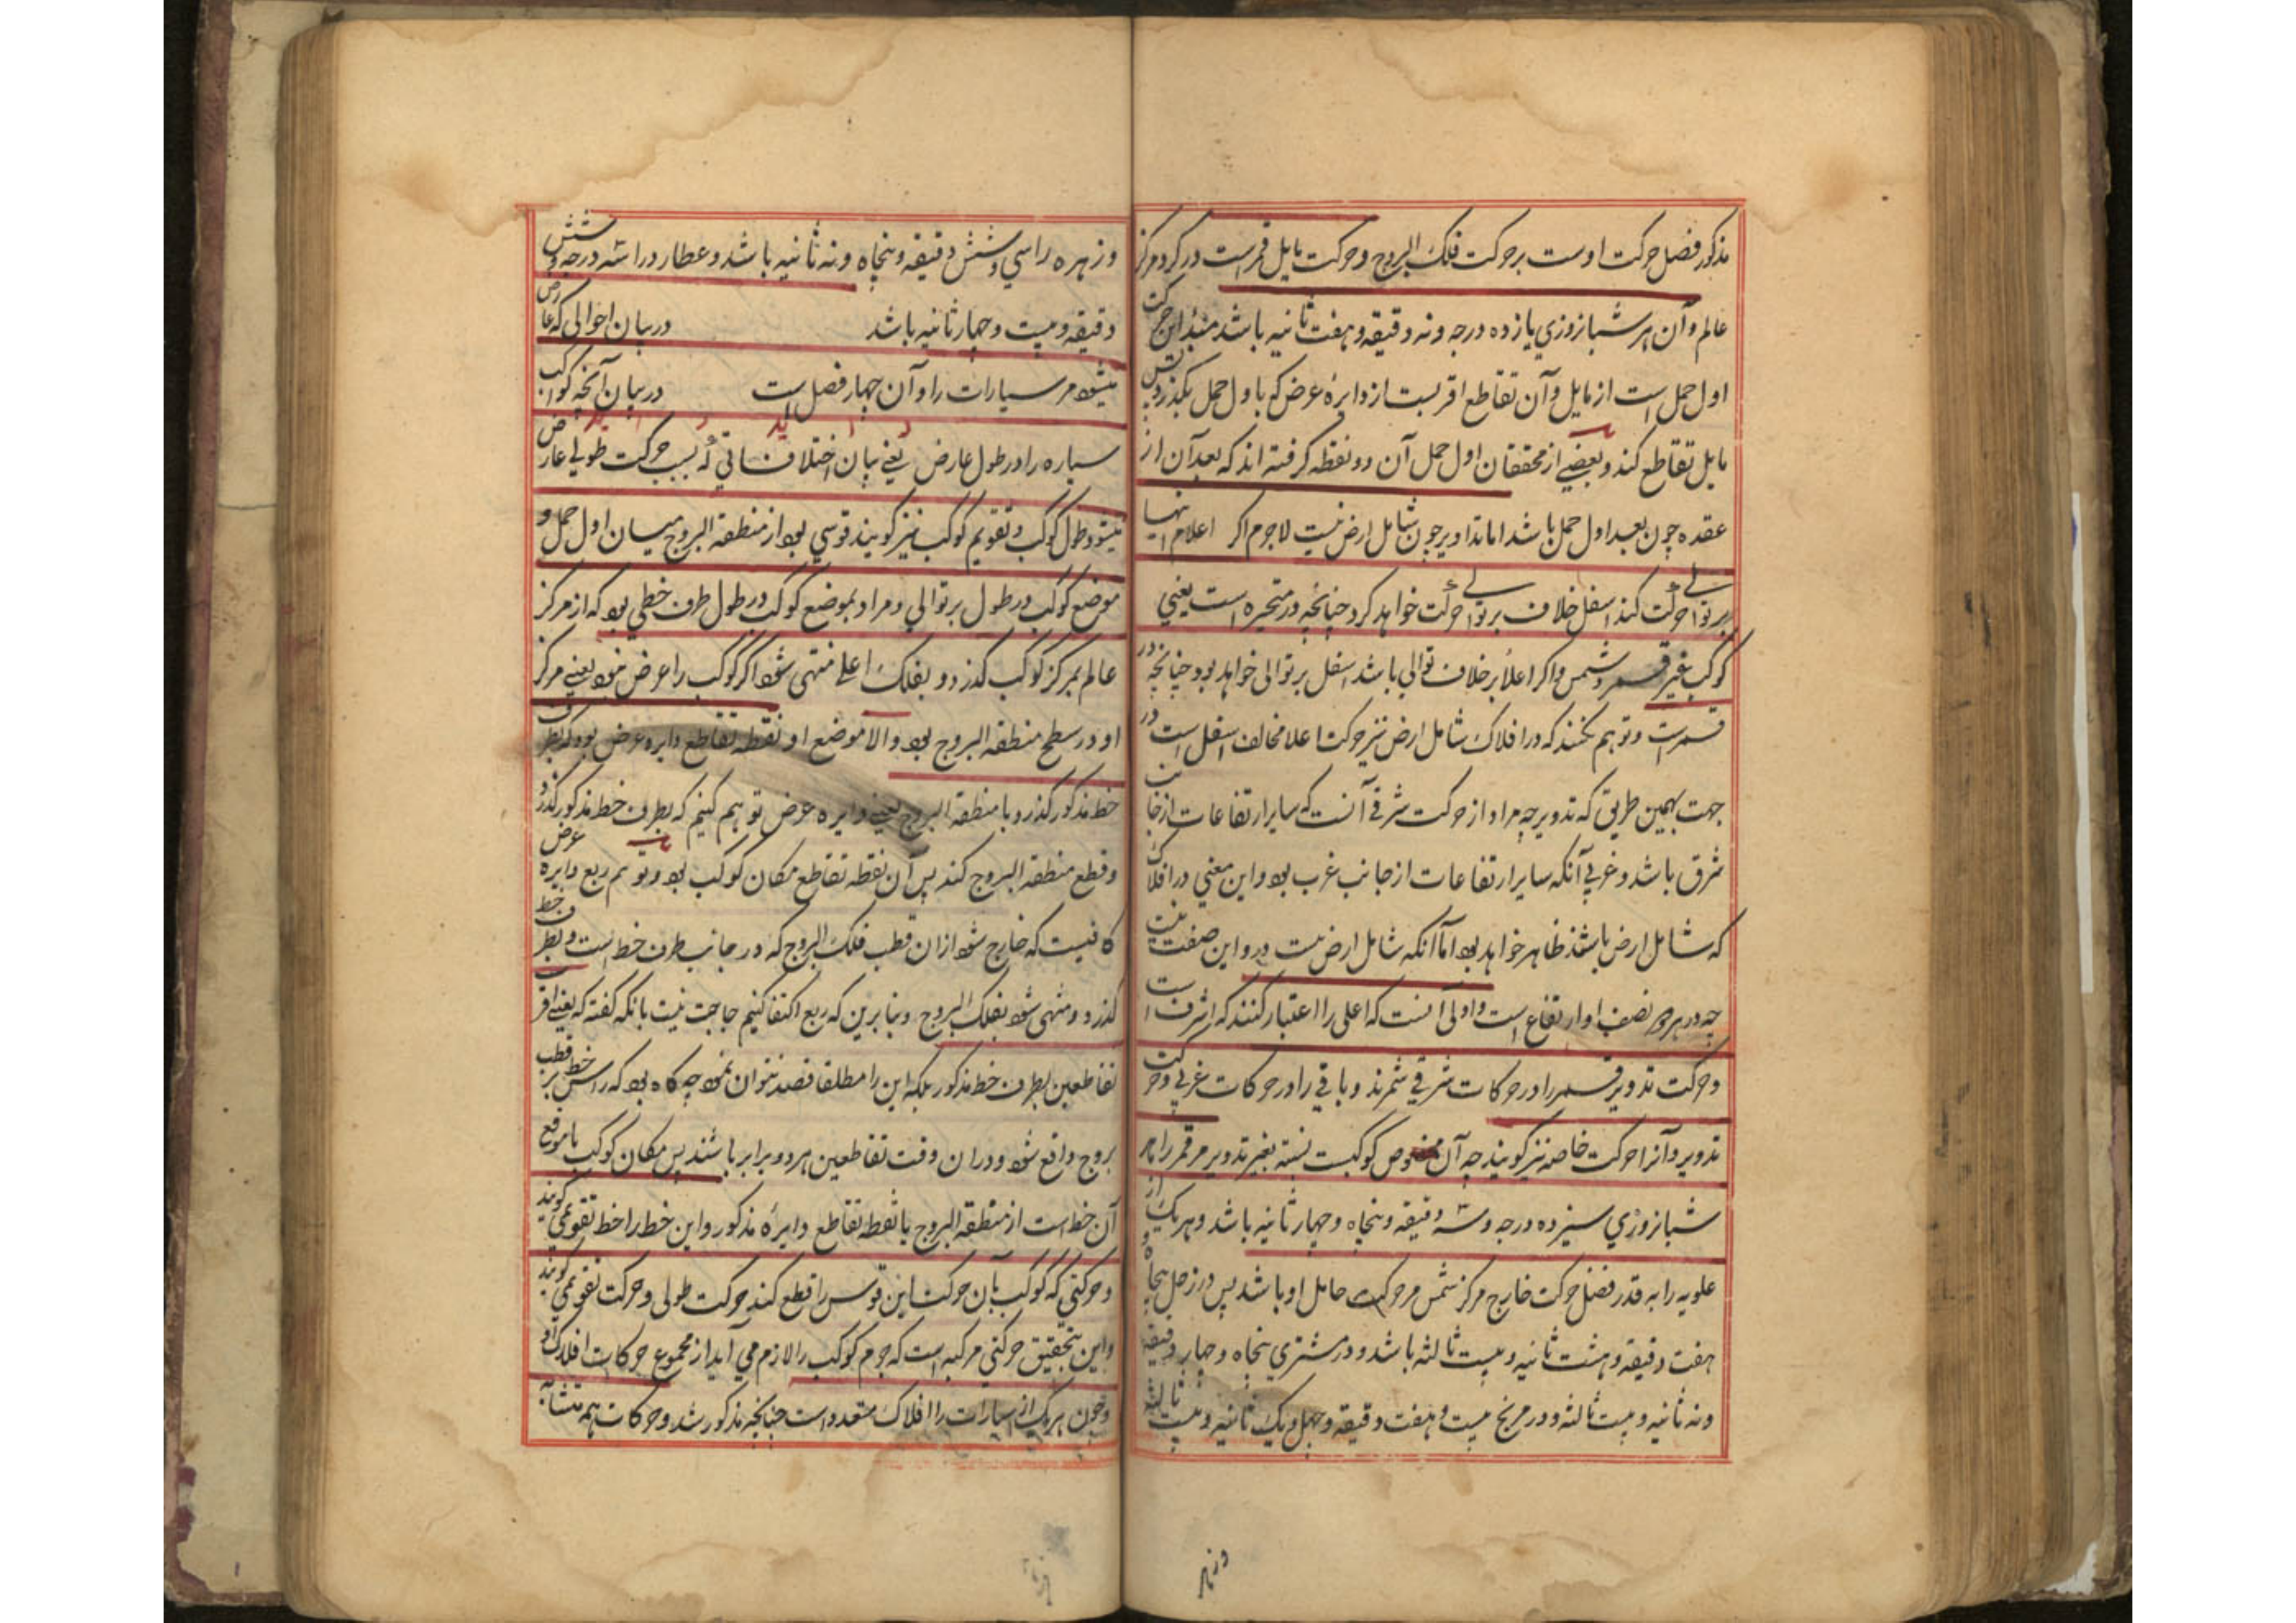 مذکور فضل حرکت اوست بر حرکت فلک البروج و حرکت مایل قمر است در کرد مرکز
عالم و آن هر شبانروزی یازده درجه و نه دقیقه و هفت ثانیه باشد مبدٲ این حرکت
اول حمل است از مایل و آن تقاطع اقربست از دایرهٔ عرض که باول حمل بکذرد
مایل تقاطع کند و بعضی از محققان اول حمل آن دو نقطه کرفته اند که بعد آن از
عقده چون بعد اول حمل باشد اما تداویر چون شامل ارض نیست لاجرم اکر اعلاء انها
بر توالی حرکت کند اسفل خلاف بر توالی حرکت خواهد کرد چنانچه در متحیره است یعنی
کوکب غیر قمر و شمس و اکر اعلا بر خلاف توالی باشد اسفل بر توالی خواهد بود چنانچه در
قمرست و توهم نکنند که در افلاک شامل ارض نیز حرکت اعلا مخالف اسفل است در
جهت بهمین طریق که تدویر چه مراد از حرکت شرقی آنست که سایر ارتفاعات از جانب
شرق باشد و غربی آنکه سایر ارتفاعات از جانب غرب بود و این معنی در افلاک
که شامل ارض باشند ظاهر خواهد بود اما آنکه شامل ارض نیست درو این صفت نیست
چه در هر نصف او ارتفاع است و اولی آنست که اعلی را اعتبار کنند که اشرف است
و حرکت تدویر قمر را در حرکات شرقی شمرند و باقی را در حرکات غربی و حرکت
تدویر و آنرا حرکت خاصه نیز کویند چه آن مخصوص کوکبست نسبته بغیر تدویر مر قمر را هر
شبانروزی سیزده درجه و سه دقیقه و پنجاه و چهار ثانیه باشد و هر یک از
علویه را به قدر فضل حرکت خارج مرکز شمس مر حرکت حامل او باشد پس در زحل پنجاه و
هفت دقیقه و هشت ثانیه و بیست ثالثه باشد و در مشتری پنجاه و چهار دقیقه
و نه ثانیه و بیست ثالثه و در مریخ بیست و هفت دقیقه و چهل و یک ثانیه و بیست ثالثه
و زهره
و زهره را سی و شش دقیقه و پنجاه و نه ثانیه باشد و عطارد را سه درجه و شش
دقیقه و بیست و چهار ثانیه باشد در بیان احوالی که عارض
میشود مر سیارات را و آن چهار فصل است در بیان آنچه کواکب
سیاره را در طول عارض یعنی بیان اختلافاتی که بسبب حرکت طولی عارض
میشود و طول کوکب و تقویم کوکب نیز کویند قوسی بود از منطقه البروج میان اول حمل و
موضع کوکب در طول بر توالی و مراد بموضع کوکب در طول طرف خطی بود که از مرکز
عالم بمرکز کوکب کذرد و بفلک اعلی منتهی شود اکر کوکب را عرض نبود یعنی مرکز
او در سطح منطقه البروج بود والا موضع او نقطه تقاطع دایره عرض بود که بطرف
خط مذکور کذرد با منطقه البروج یعنی دایره عرض توهم کنیم که بطرف خط مذکور کذرد
و قطع منطقه البروج کند پس آن نقطه تقاطع مکان کوکب بود و توهم ربع دایره عرض
کافیست که خارج شود از ان قطب فلک البروج که در جانب طرف خط است و بطرف خط
کذرد و منتهی شود بفلک البروج و بنابرین که ربع اکتفا کنیم حاجت نیست بانکه کفته که یعنی اقرب
تقاطعین بطرف خط مذکور بلکه این را مطلقا قصد نتوان نمود چه کاه بود که راس خط بر قطب
بروج واقع شود و دران وقت تقاطعین هر دو برابر باشند پس مکان کوکب یا موقع
آن خط است از منطقه البروج یا نقطه تقاطع دایرهٔ مذکور و این خط را خط تقویمی کویند
و حرکتی که کوکب بآن حرکت این قوس را قطع کند حرکت طولی و حرکت تقویمی کویند
و این بتحقیق حرکتی مرکبه است که جرم کوکب را لازم می آید از مجموع حرکات افلاک او
و چون هر یک از سیارات را افلاک متعدد است چنانچه مذکور شد و حرکات همه متشابه